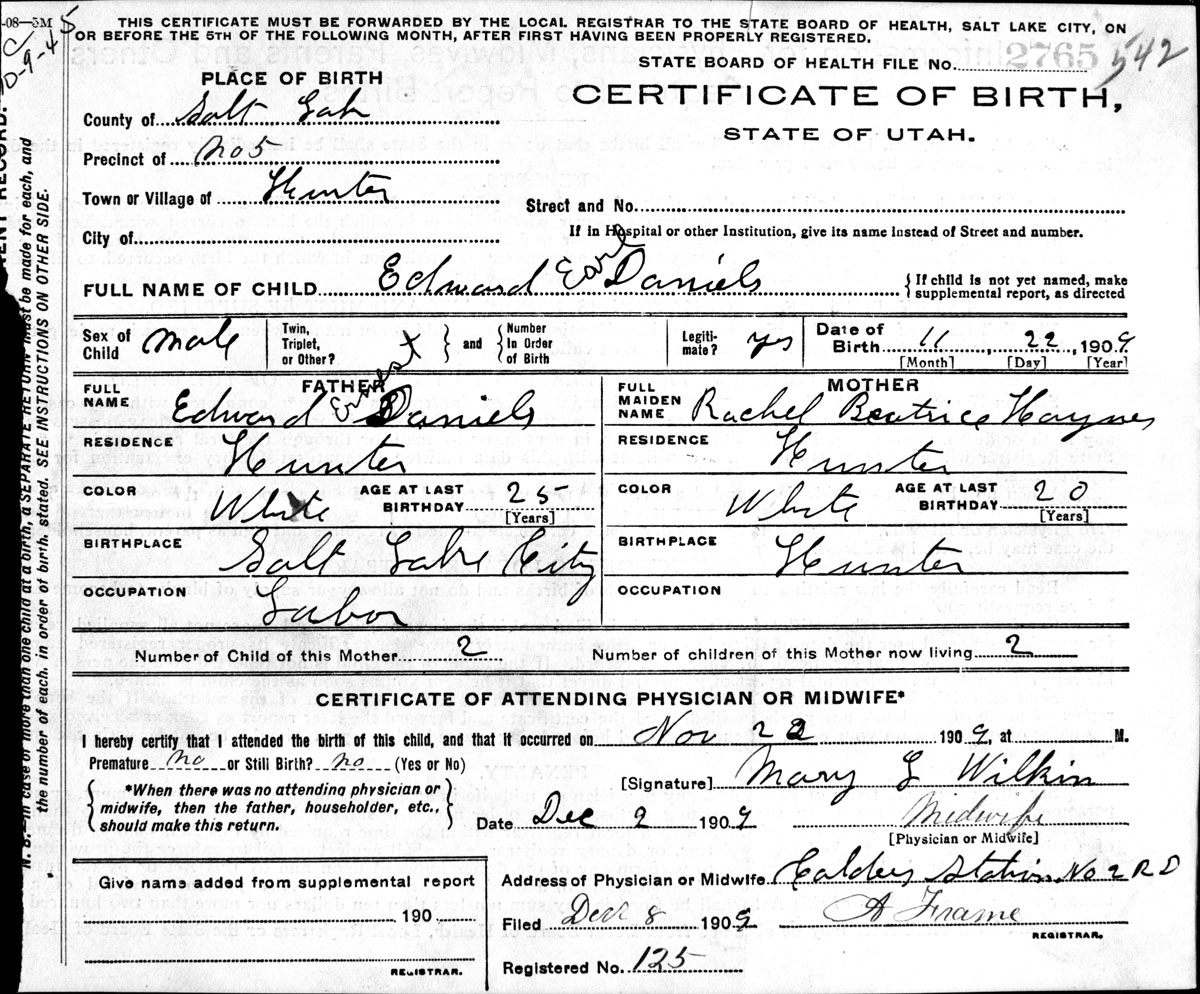 -08—5M
C
D-9-45
THIS CERTIFICATE MUST BE FORWARDED BY THE LOCAL REGISTRAR TO THE STATE BOARD OF HEALTH, SALT LAKE CITY, ON
OR BEFORE THE 5TH OF THE FOLLOWING MONTH, AFTER FIRST HAVING BEEN PROPERLY REGISTERED.
STATE BOARD OF HEALTH FILE No. 2765 542
PLACE OF BIRTH
CERTIFICATE OF BIRTH,
STATE OF UTAH.
County of Salt Lake
Precinct of No 5
Town or Village of Hunter
Street and No.
City of
If in Hospital or other Institution, give its name instead of Street and number.
FULL NAME OF CHILD Edward Earl Daniels
{If child is not yet named, make
supplemental report, as directed
Sex of Child male
Twin, Triplet, or Other? x } and { Number In Order of Birth
Legiti-mate? yes
Date of Birth 11, 22, 1909
[Month] [Day] [Year]
FATHER
FULL NAME Edward Ernest Daniels
RESIDENCE Hunter
COLOR White AGE AT LAST BIRTHDAY 25
[Years]
BIRTHPLACE Salt Lake City
OCCUPATION Labor
MOTHER
FULL MAIDEN NAME Rachel Beatrice Haynes
RESIDENCE Hunter
COLOR White AGE AT LAST BIRTHDAY 20
[Years]
BIRTHPLACE Hunter
OCCUPATION
Number of Child of this Mother 2 Number of children of this Mother now living 2
CERTIFICATE OF ATTENDING PHYSICIAN OR MIDWIFE*
I hereby certify that I attended the birth of this child, and that it occurred on Nov 22 1909, at M.
Premature no or Still Birth? no (Yes or No)
[Signature] Mary L Wilkin
{*When there was no attending physician or
midwife, then the father, householder, etc.,
should make this return.}
Date Dec 2 1909 Midwife
[Physician or Midwife]
Give name added from supplemental report
190
REGISTRAR.
Address of Physician or Midwife Calders Station No 2 R D
Filed Dec 8 1909 A Frame
REGISTRAR.
Registered No. 125
N. B.—In case of more than one child at a birth, a SEPARATE RETURN must be made for each, and
the number of each, in order of birth, stated. SEE INSTRUCTIONS ON OTHER SIDE.